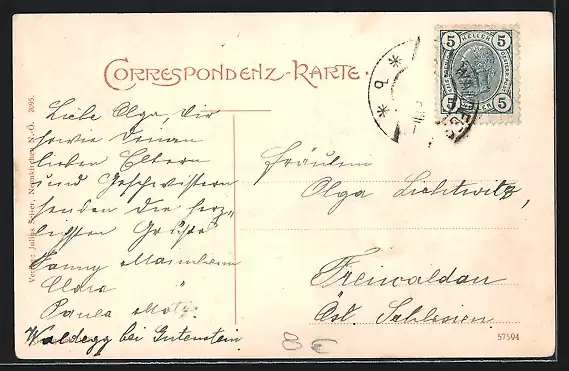 CORRESPONDENZ-KARTE.
5 HELLER 5
5 HELLER 5
* 9 *
Liebe Olga, Dir
sowie Deinen
lieben Eltern
und Geschwistern
senden die herz-
lichsten Grüße
Fanny Mannheim
Clara "
Paula
Waldegg bei Gutenstein
Fräulein
Olga Lichtwitz,
Freiwaldau
Öst. Schlesien
Verlag: Julius Seiser, Neunkirchen N.-Ö. 2095.
57594
8 €